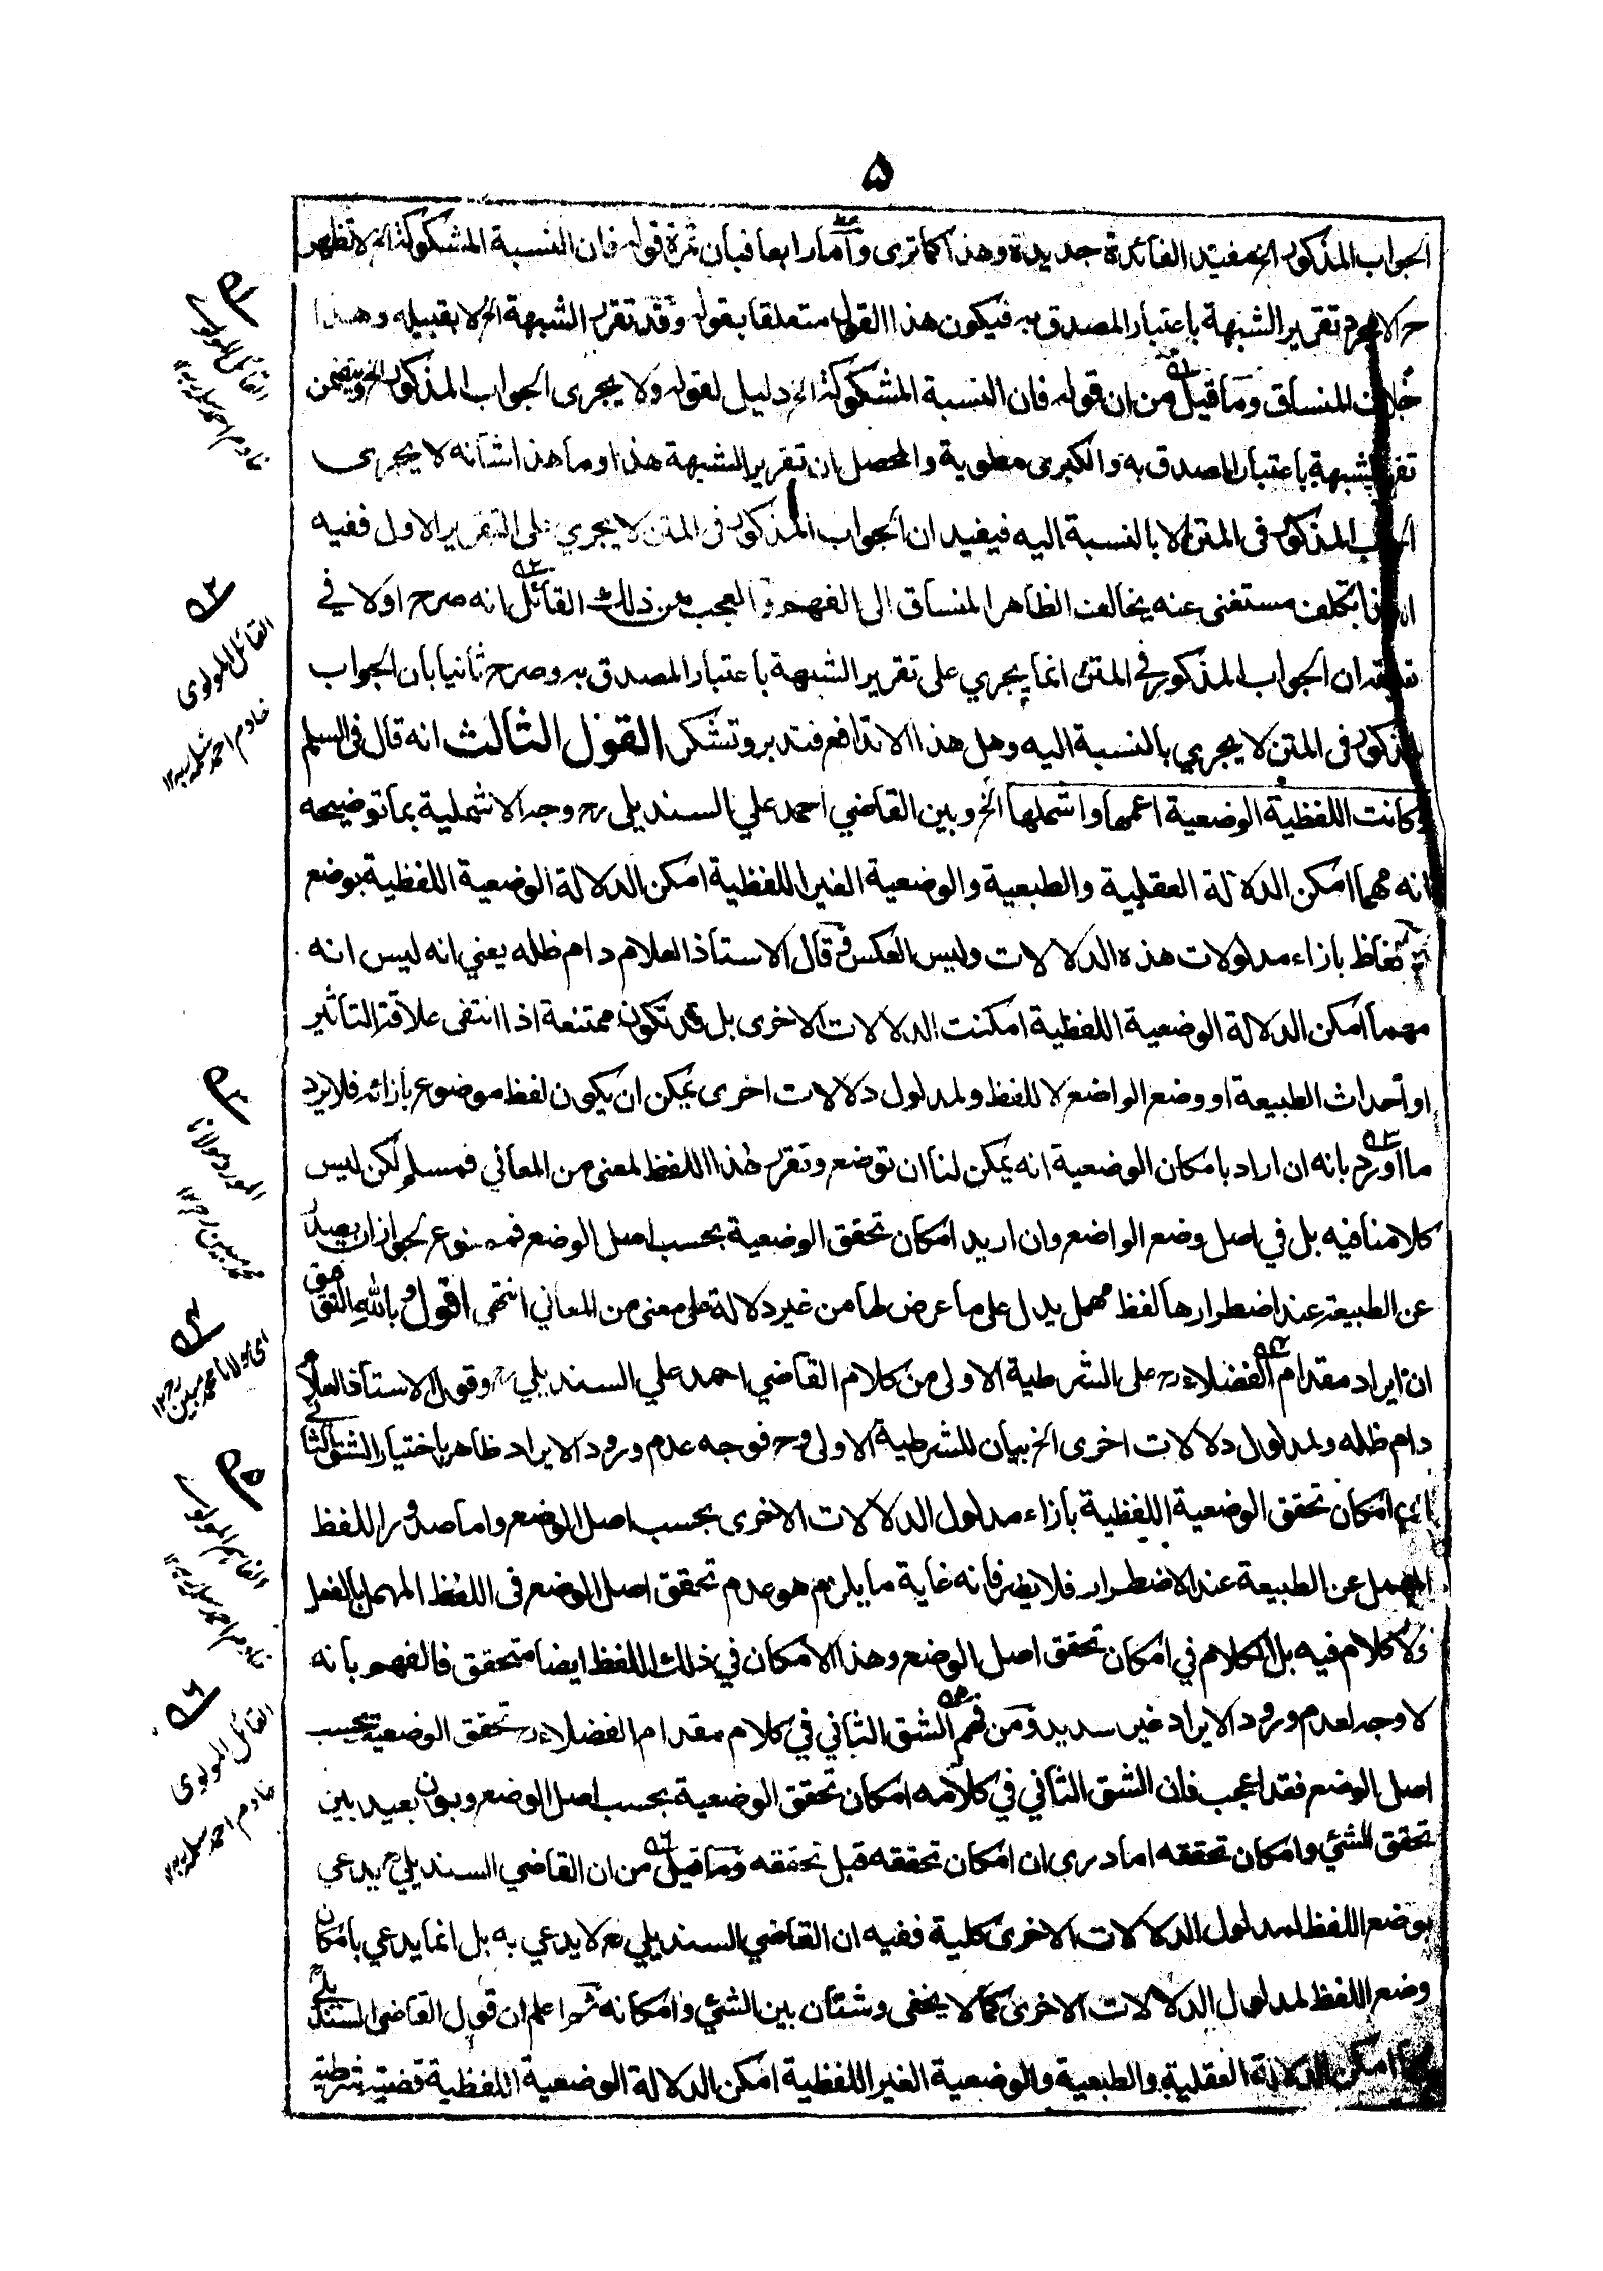 ۵
الجواب المذكور الخ مفيد الفائدة جديدة وهذا كما ترى واما رابعا فبان ثمرة قوله فان النسبة المشكوكة الخ لا تظهر
ح الا بجزم تقرير الشبهة باعتبار المصدق به فيكون هذا القول متعلقا بقوله وقد تقرر الشبهة الخ لا بقبيله وهذا
خلاف المنساق وما قيل من ان قوله فان النسبة المشكوكة الخ دليل لقوله ولا يجرى الجواب المذكور الخ
الشبهة باعتبار المصدق به والكبرى مطوية والمحصل ان تقرير الشبهة هذا وما هذا شانه لا يجرى
المذكور فى المتن الا بالنسبة اليه فيفيد ان الجواب المذكور فى المتن لا يجري على التقرير الاول ففيه
تكلف مستغنى عنه يخالف الظاهر المنساق الى الفهم والعجب من ذلك القائل انه صرح اولا في
ان الجواب المذكور في المتن انما يجري على تقرير الشبهة باعتبار المصدق به وصرح ثانيا بان الجواب
المذكور فى المتن لا يجري بالنسبة اليه وهل هذا الا تدافع فتدبر وتشكر القول الثالث انه قال فى السلم
وكانت اللفظية الوضعية اعمها واشملها الخ وبين القاضي احمد علي السنديلي رح وجه الاشملية بما توضيحه
انه مهما امكن الدلالة العقلية والطبعية والوضعية الغير اللفظية امكن الدلالة الوضعية اللفظية بوضع
الالفاظ بازاء مدلولات هذه الدلالات وليس العكس قال الاستاذ العلام دام ظله يعني انه ليس انه
مهما امكن الدلالة الوضعية اللفظية امكنت الدلالات الاخرى بل قد تكون ممتنعة اذا انتفى علاقة التأثير
او أحداث الطبيعة او وضع الواضع لا للفظ ولمدلول دلالات اخرى يمكن ان يكون لفظ موضوع بازائه فلا يرد
ما اورد بانه ان اراد بامكان الوضعية انه يمكن لنا ان توضع وتقرر هذا اللفظ لمعنى من المعاني فمسلم لكن ليس
كلامنا فيه بل في اصل وضع الواضع وان اريد امكان تحقق الوضعية بحسب اصل الوضع فممنوع لجواز ان يصدر
عن الطبيعة عند اضطرارها لفظ مهمل يدل على ما عرض لها من غير دلالة على معنى من المعاني انتهى اقول وبالله التوفيق
ان ايراد مقدام الفضلاء رح على الشرطية الاولى من كلام القاضي احمد علي السنديلي رح وقول الاستاذ العلام
دام ظله ولمدلول دلالات اخرى الخ بيان للشرطية الاولى وح فوجه عدم ورود الايراد ظاهر باختيار الشق الثاني
اي امكان تحقق الوضعية اللفظية بازاء مدلول الدلالات الاخرى بحسب اصل الوضع واما صدور اللفظ
المهمل عن الطبيعة عند الاضطرار فلا يضر فانه غاية ما يلزم هو عدم تحقق اصل الوضع فى اللفظ المهمل بالفعل
ولا كلام فيه بل الكلام في امكان تحقق اصل الوضع وهذا الامكان في ذلك اللفظ ايضا متحقق فالفهم بانه
لا وجه لعدم ورود الايراد غير سديد ومن فهم الشق الثاني في كلام مقدام الفضلاء رح تحقق الوضعية بحسب
اصل الوضع فقد اعجب فان الشق الثاني في كلامه امكان تحقق الوضعية بحسب اصل الوضع وبون بعيد بين
تحقق الشئي وامكان تحققه اما درى ان امكان تحققه قبل تحققه وما قيل من ان القاضي السنديلي رح يدعي
بوضع اللفظ لمدلول الدلالات الاخرى كلية ففيه ان القاضي السنديلي رح لا يدعي به بل انما يدعي بامكان
وضع اللفظ لمدلول الدلالات الاخرى كما لا يخفى وشتان بين الشئي وامكانه ثم اعلم ان قول القاضى السنديلي رح
امكن الدلالة العقلية والطبعية والوضعية الغير اللفظية امكن الدلالة الوضعية اللفظية قضية شرطية
القائل المولوي
خادم احمد سلمه ربه ١٢
القائل المولوى
خادم احمد سلمه ربه ١٢
المورد مولانا
محمد مبين رح ١٢
اى مولانا محمد مبين رح ١٢
الفاهم المولوي
خادم احمد سلمه ربه ١٢
القائل المولوى
خادم احمد سلمه ربه ١٢